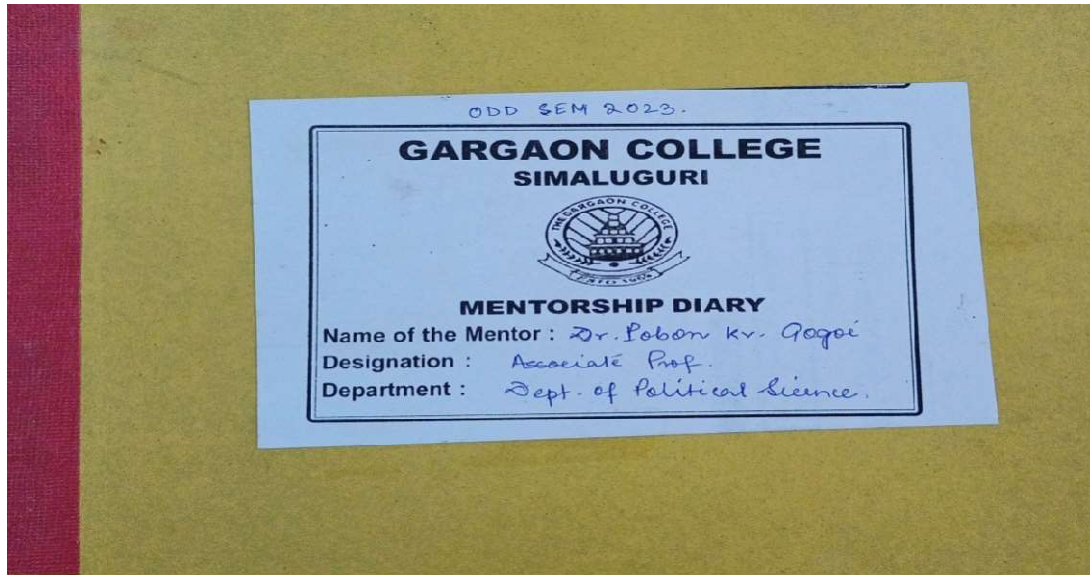 ODD SEM 2023.
GARGAON COLLEGE
SIMALUGURI
THE GARGAON COLLEGE
ESTD 1959
MENTORSHIP DIARY
Name of the Mentor : Dr. Pobon Kr. Gogoi
Designation : Associate Prof.
Department : Dept. of Political Science.